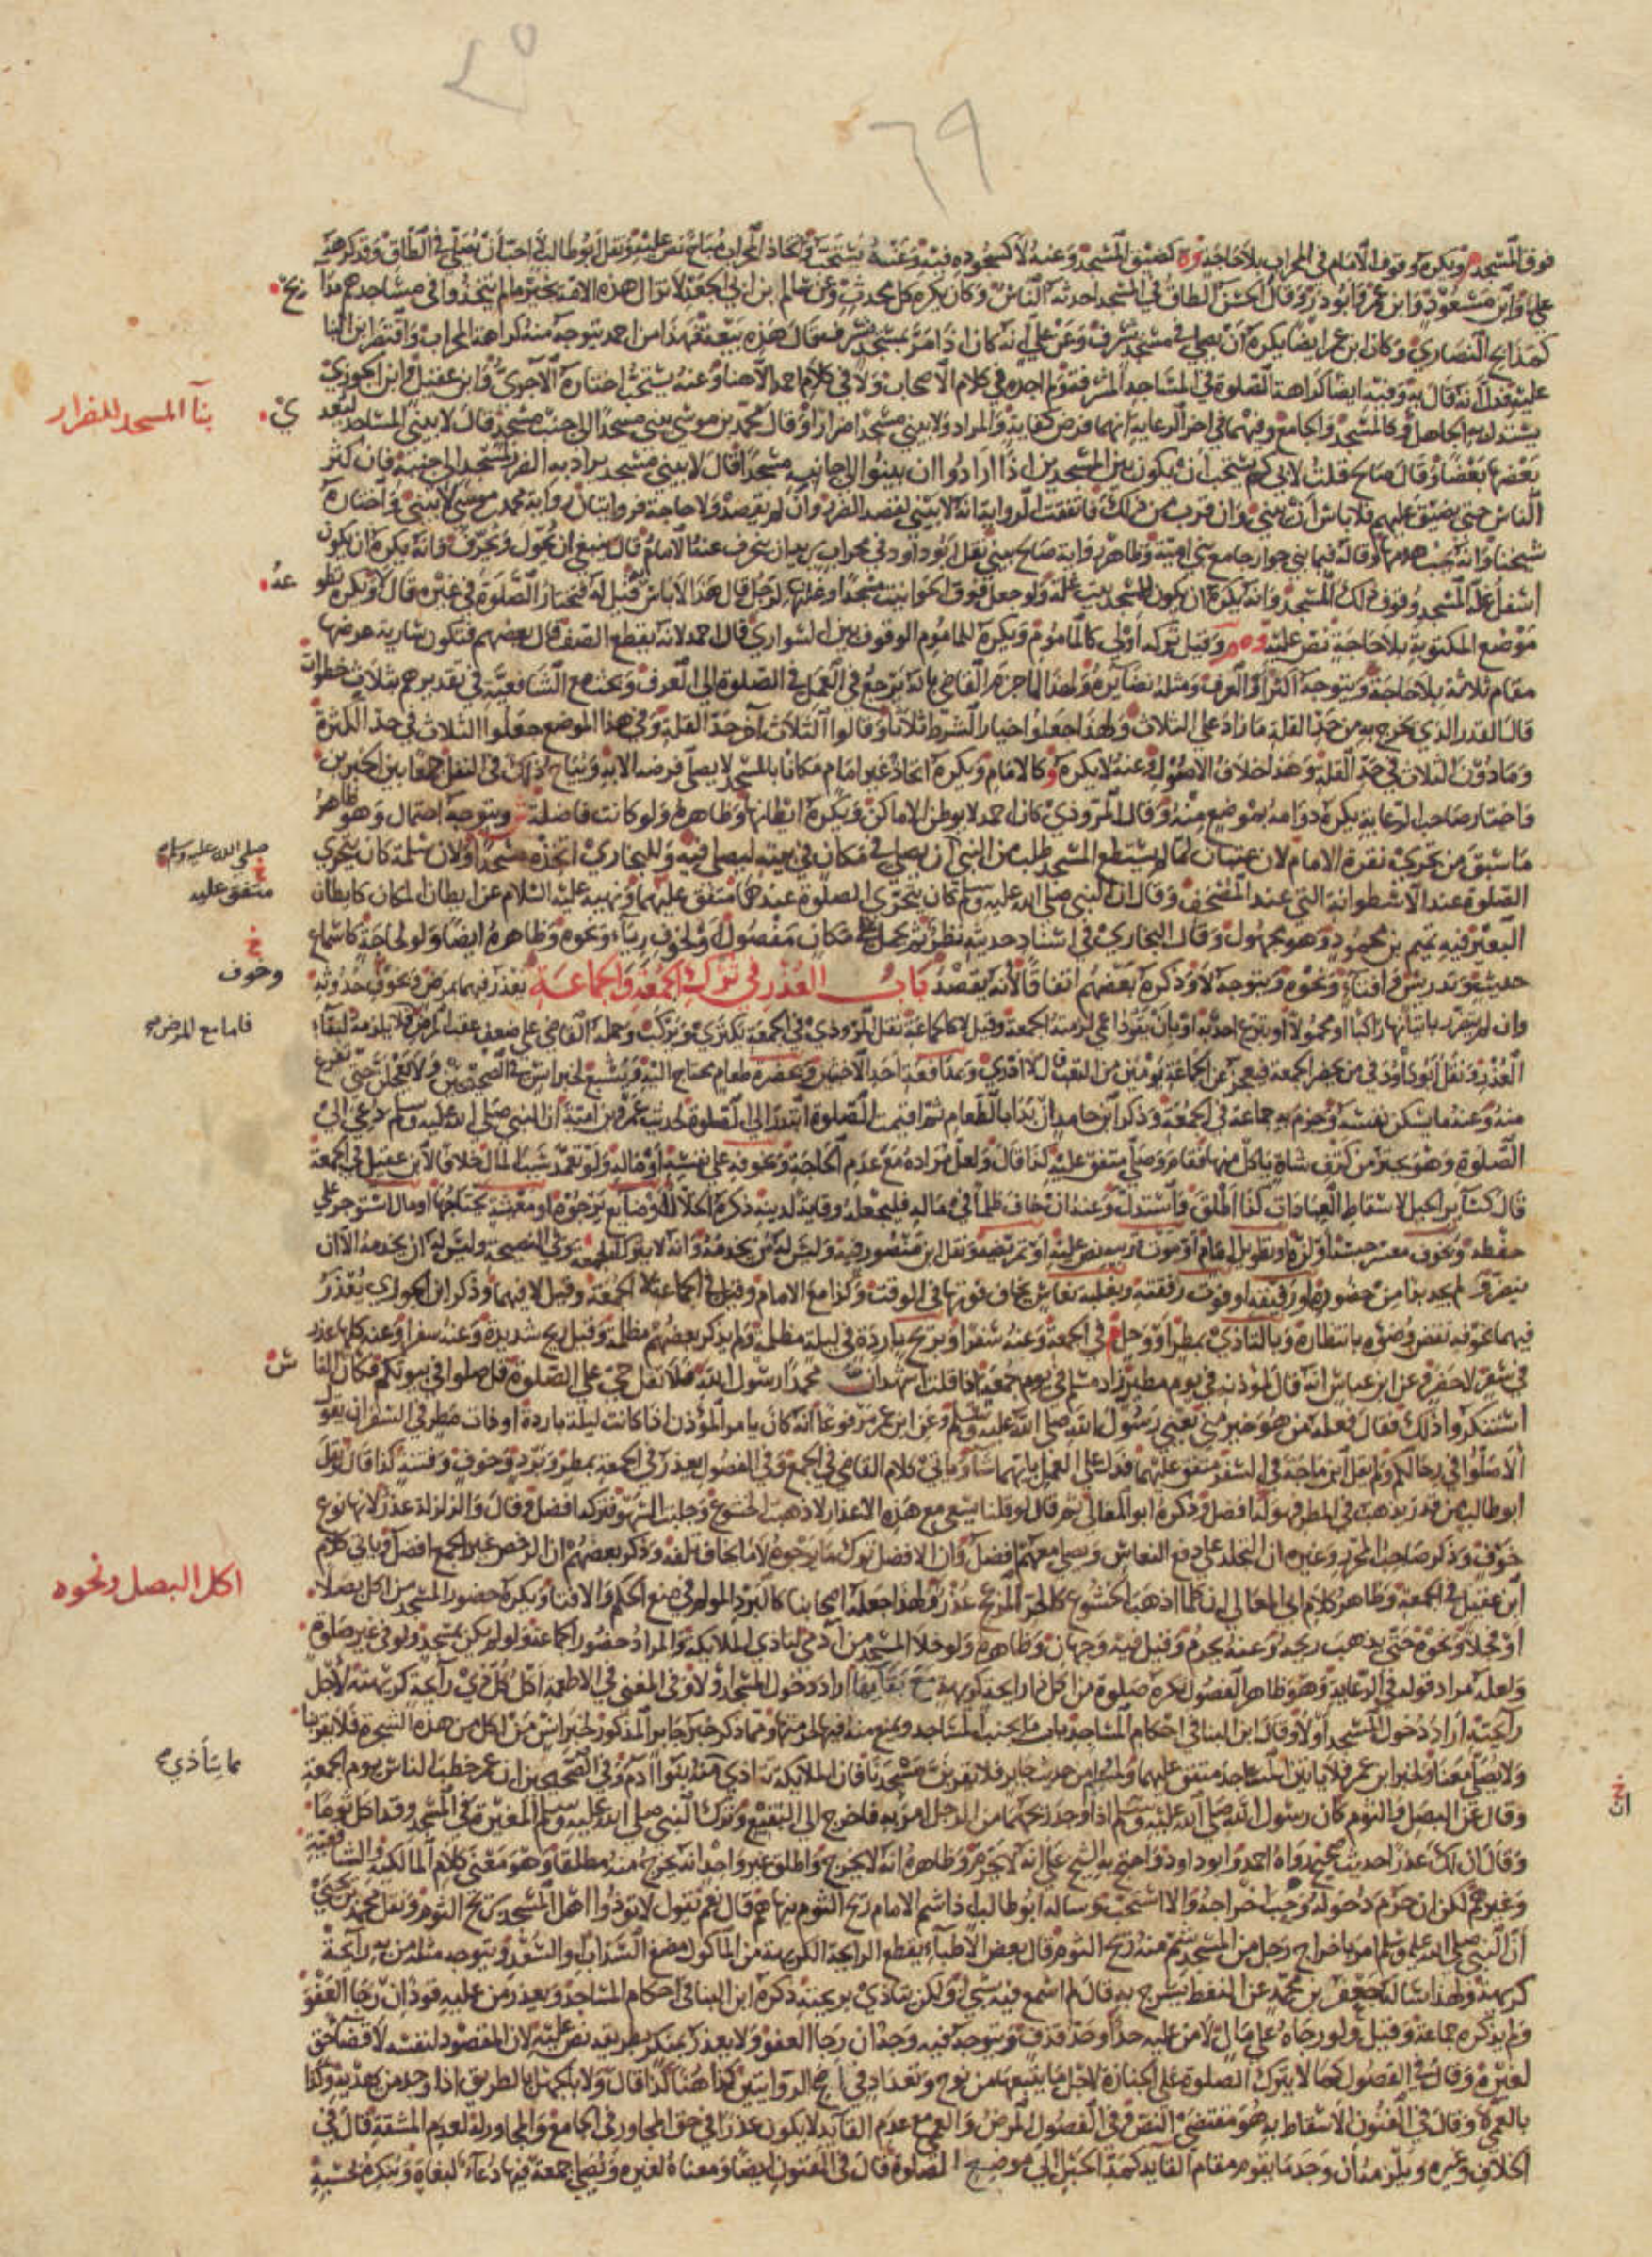 ٤٥
٦٩
فوق المسجد ويكره وقوف الامام في المحراب بلا حاجة كضيق المسجد وعنه لا كسجوده فيه وعنه يستحب واتخاذ المحراب مباح نص عليه ونقل ابو طالب لا احب ان يصلي في الطاق وقد كرهه
علي وابن مسعود وابن عمر وابو ذر وقال الحسن الطاق في المسجد احدثه الناس وكان يكره كل محدث وعن سالم بن ابي الجعد لا تزال هذه الامة بخير ما لم يتخذوا في مساجدهم مذابح
كمذابح النصارى وكان ابن عمر ايضا يكره ان يصلي في مسجد يشرف وعن علي انه كان اذا مر بمسجد يشرف قال هذه بيعة فهذا من احمد يتوجه منه كراهة المحراب واقتصر ابن البنا
عليه فدل انه قال به وفيه ايضا كراهة الصلوة في المساجد المشرفة ولم اجده في كلام الاصحاب ولا في كلام احمد الا هنا وعنه يستحب اختاره الآجري وابن عقيل وابن الجوزي
يستدل به الجاهل وكالمسجد والجامع وفيهما في اخر الرعاية انهما فرض كفاية والمراد ولا يبني مسجد اضرارا وقال محمد بن موسى يبني مسجدا الى جنب مسجد قال لا يبني المساجد ليعدي
بناآ المسجد للضرار
بعضها بعضا وقال صالح قلت لابي كم يستحب ان يكون بين المسجدين اذا ارادوا ان يبنوا الى جانبه مسجدا قال لا يبني مسجد يراد به الضرر لمسجد الى جنبه فان كثر
الناس حتى يضيق عليهم فلا باس ان يبني وان قرب من ذلك فاتفقت الرواية انه لا يبني لقصد الضرر وان لم يقصد ولا حاجة فروايتان رواية محمد بن موسى لا يبني واختاره
شيخنا وانه يجب هدمها وقاله فيما بني جوار جامع بني امية وظاهر رواية صالح يبني نقل ابو داود في محراب يريدان ينحرف عنه الامام قال ينبغي ان يحول ويحرف وانه يكره ان يكون
اسفل غلة المسجد وفوق ذلك المسجد وانه يكره ان يكون للمسجد بيت غلة ولو جعل فوق الحوانيت مسجدا وغلتها لرجل قال هذا لا باس قيل له فتختار الصلوة في غيره قال لا ويكره تطوعه
موضع المكتوبة بلا حاجة نص عليه وقيل تركه اولى كالماموم ويكره للماموم الوقوف بين السواري قال احمد لانه يقطع الصف قال بعضهم فتكون سارية عرضها
مقام ثلاثة بلا حاجة ويتوجه اكثر او العرف ومثله نظائره ولهذا لما جزم القاضي بانه يرجع في العمل في الصلوة الى العرف وبحث مع الشافعية في تقديرهم بثلاث خطوات
قال القدر الذي يخرج به من حد القلة ما زاد على الثلاث ولهذا جعلوا خيار الشرط ثلاثا وقالوا الثلاث آخر حد القلة وفي هذا الموضع جعلوا الثلاث في حد الكثرة
وما دون الثلاث في حد القلة وهذا خلاف الاصول وعنه لا يكره وكالامام ويكره اتخاذ غير امام مكانا بالمسجد لا يصلي فرضه الا به ويباح ذلك في النفل جمعا بين الخبرين
واختار صاحب الرعاية يكره دوامه بموضع منه وقال المروذي كان احمد لا يوطن الاماكن ويكره ايطانها وظاهره ولو كانت فاضلة ويتوجه احتمال وهو ظاهر
ما سبق من تحري نقرة الامام لان عتبان لما لم يستطع المسجد طلب من النبي ان يصلي في مكان في بيته ليصلي فيه وللبخاري اتخذه مسجدا ولان سلمة كان يتحرى
صلى الله عليه وسلم
الصلوة عند الاسطوانة التي عند المصحف وقال ان النبي صلى الله عليه وسلم كان يتحرى الصلوة عندها متفق عليهما ونهيه عليه السلام عن ايطان المكان كايطان
متفق عليه
البعير فيه تميم بن محمود وهو مجهول وقال البخاري في اسناد حديثه نظر ثم يحمل على مكان مفضول ولخوف رياء ونحوه وظاهره ايضا ولو لحاجة كاسماع
حديث وتدريس وافتاء ونحوه ويتوجه لا وذكره بعضهم اتفاقا لانه يقصد باب العذر في ترك الجمعة والجماعة يعذر فيهما بمرض ونحو حدوثه
وخوف
وان لم يتضرر باتيانها راكبا او محمولا او تبرع احد به او بان يقود اعمى لزمته الجمعة وقيل لا كالجماعة نقل المروذي في الجمعة يكتري ويركب وحمله القاضي على ضعف عقب المرض فلا يلزمه لبقاء
فاما مع المرض
العذر ونقل ابو داود في من يحضر الجمعة فيعجز عن الجماعة يومين من التعب قال لا ادري وبمدافعة احد الاخبثين وبحضرة طعام محتاج اليه ويشبع لخبر انس في الصحيحين ولا تعجلن حتى تفرغ
منه وعنه ما يسكن نفسه وجزم به جماعة في الجمعة وذكر ابن حامد ان بدا بالطعام ثم اقيمت الصلوة ابتدر الى الصلوة لحديث عمرو بن امية ان النبي صلى الله عليه وسلم دعي الى
الصلوة وهو يحتز من كتف شاة ياكل منها فقام وصلى متفق عليه كذا قال ولعل مراده مع عدم الحاجة وبخوفه على نفسه او ماله ولو تعمد سبب المال خلافا لابن عقيل في الجمعة
قال كسائر الحيل لاسقاط العبادات كذا اطلق واستدل وعنه ان خاف ظلما في ماله فليجعله وقاية لدينه ذكره الخلال او ضايع يرجوه او معيشة يحتاجها او مال استوجر على
حفظه وبخوف معسر حبسا او لزه او تطويل امام او موت قريبه نص عليه او تمريضه ونقل ابن منصور فيه وليس له من يخدمه وانه لا يترك الجمعة وفي النصيحة وليس له ان يخدمه الا ان
يتضرر ولم يجد بدا من حضوره او رفيقه او فوت رفقته وبغلبة نعاس يخاف فوتها في الوقت وكذا مع الامام وقيل في الجماعة لا الجمعة وقيل لا فيهما وذكر ابن الجوزي يعذر
فيهما بخوفه نقض وضوئه بانتظاره وبالتاذي بمطر او وحل في الجمعة وعنه سفرا وبريح باردة في ليلة مظلمة ولم يذكر بعضهم مظلمة وقيل ريح شديدة وعنه سفرا وعنه كلها عذر
في سفر لا حضر وعن ابن عباس انه قال لمؤذنه في يوم مطير زاد مسلم في يوم جمعة اذا قلت اشهد ان محمدا رسول الله فلا تقل حي على الصلوة قل صلوا في بيوتكم فكان الناس
استنكروا ذلك فقال فعله من هو خير مني يعني رسول الله صلى الله عليه وسلم وعن ابن عمر مرفوعا انه كان يامر المؤذن اذا كانت ليلة باردة او ذات مطر في السفر ان يقول
الا صلوا في رحالكم ولم يقل ابن ماجة في السفر متفق عليهما فدل على العمل بايهما شاء وياتي كلام القاضي في الجمع وفي الفصول يعذر في الجمعة بمطر وبرد وخوف وفتنة كذا قال ونقل
ابو طالب من قدر يذهب في المطر فهو له افضل وذكره ابو المعالي ثم قال لو قلنا يسعى مع هذه الاعذار لاذهبت الخشوع وجلبت السهو فتركه افضل وقال والزلزلة عذر لانها نوع
خوف وذكر صاحب المحرر وغيره ان التجلد على دفع النعاس ويصلي معهم افضل وان الافضل ترك ما يرجوه لا ما يخاف تلفه وذكر بعضهم ان الرخص غير الجمع افضل وياتي كلام
ابن عقيل في الجمعة وظاهر كلام ابي المعالي ان كلما اذهب الخشوع كالحر المزعج عذر ولهذا جعله اصحابنا كالبرد المولم في منع الحكم والافتا ويكره حضور المسجد من اكل بصلا
اكل البصل ونحوه
او فجلا ونحوه حتى يذهب ريحه وعنه يحرم وقيل فيه وجهان وظاهره ولو خلا المسجد من آدمي لتاذي الملايكة والمراد حضور الجماعة ولو لم يكن بمسجد ولو في غير صلوة
ولعله مراد قوله في الرعاية وهو ظاهر الفصول يكره صلوة من اكل ذا رايحة كريهة مع بقائها اراد دخول المسجد او لا وفي المغني في الاطعمة اكل كل ذي رايحة كريهة لاجل
رايحته اراد دخول المسجد او لا وقال ابن البنا في احكام المساجد باب ما يجنب المساجد ويمنع منه فيها لحرمتها ومما ذكر خبر جابر المذكور لخبر انس من اكل من هذه الشجرة فلا يقربنا
ولا يصلي معنا ولخبر ابن عمر فلا ياتين المساجد متفق عليهما ولمسلم من حديث جابر فلا يقربن مسجدنا فان الملايكة تتاذى منه بنو آدم وفي الصحيحين ان عمر خطب الناس يوم الجمعة
مما يتأذى
وقال عن البصل والثوم كان رسول الله صلى الله عليه وسلم اذا وجد ريحهما من الرجل امر به فاخرج الى البقيع وترك النبي صلى الله عليه وسلم المغيرة في المسجد وقد اكل ثوما
ان
وقال ان لك عذرا حديث صحيح رواه احمد وابو داود واحتج به الشيخ على انه لا يحرم وظاهره انه لا يخرج واطلق غير واحد انه يخرج منه مطلقا وهو معنى كلام المالكية والشافعية
وغيرهم لكن ان حرم دخوله وجب اخراجه والا استحب وساله ابو طالب اذا شم الامام ريح الثوم ينهاهم قال نعم يقول لا توذوا اهل المسجد بريح الثوم ونقل محمد بن يحيى
ان النبي صلى الله عليه وسلم امر باخراج رجل من المسجد شم منه ريح الثوم قال بعض الاطباء يقطع الرايحة الكريهة من الماكول مضغ السذاب او السعد ويتوجه مثله من به رايحة
كريهة ولهذا ساله جعفر بن محمد عن النفط يسرج به قال لم اسمع فيه بشي ولكن يتاذى بريحه ذكره ابن البنا في احكام المساجد ويعذر من عليه قود ان رجا العفو
ولم يذكره جماعة وقيل ولو رجاه على مال لا من عليه حد او حد قذف ويتوجه فيه وجه ان رجا العفو ولا يعذر بمنكر بطريقه نص عليه لان المقصود لنفسه لا قضا حق
لغيره وقال في الفصول كما لا يترك الصلوة على الجنازة لاجل ما يتبعها من نوح وتعداد في اصح الروايتين كذا هنا كذا قال ولا بالجهل بالطريق اذا وجد من يهديه وكذا
بالعمى وقال في الفنون الاسقاط به هو مقتضى النص وفي الفصول المرض والعمى مع عدم القايد لا يكون عذرا في حق المجاور في الجامع والمجاور له لعدم المشقة قال في
الخلاف وغيره ويلزمه ان وجد ما يقوم مقام القايد كمد الحبل الى موضع الصلوة قال في الفنون ايضا ومعناه لغيره ويصلي جمعة فيها دعاء لبغاة وينكره بحسبه